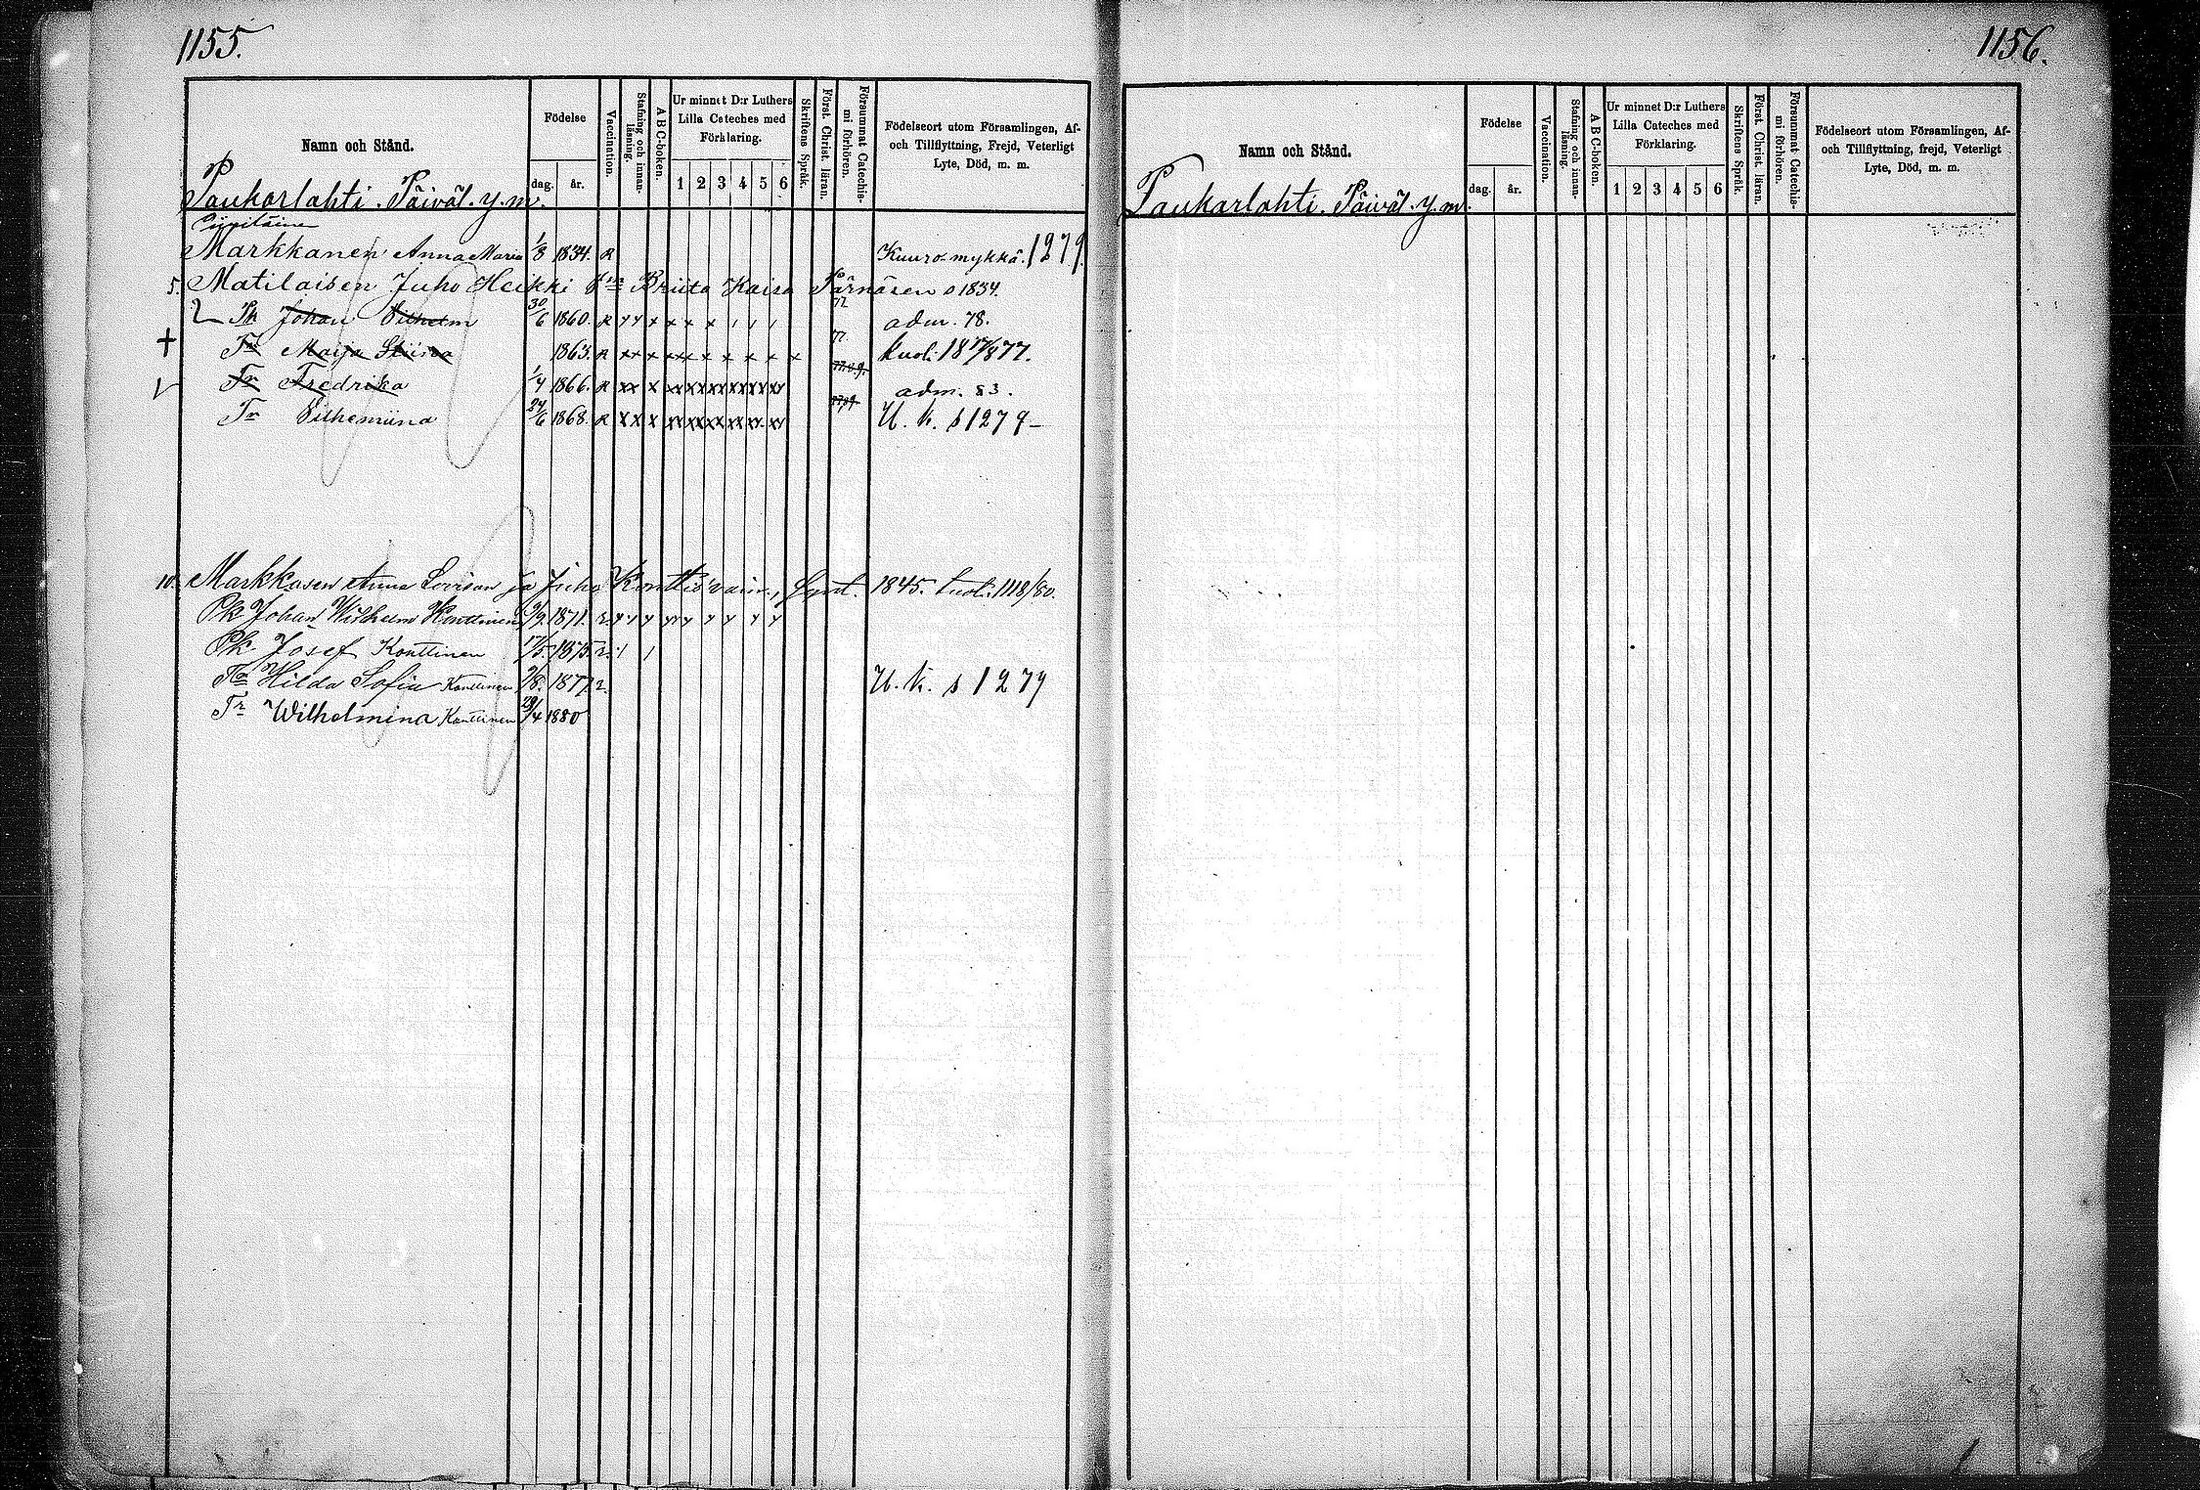 1155.
Namn och Stånd.
Födelse
dag.
år.
Vaccination.
Stafning och innan-
läsning.
A B C-boken.
Ur minnet D:r Luthers
Lilla Cateches med
Förklaring.
1 2 3 4 5 6
Skriftens Språk.
Först. Christ. läran.
Försummat Catechis-
mi förhören.
Födelseort utom Församlingen, Af-
och Tillflyttning, Frejd, Veterligt
Lyte, Död, m. m.
Paukarlahti. Päiväl. y. m.
Markkanen Anna Maria 1/3 1834. R Kuuro-mykkä. 1279.
5. Matilaisen Juho Heikki Briita Kaisa Pärnäsen o 1834.
Pk Johan Vilhelm 30/6 1860. R 77 adm. 78.
+ Tr Maija Stiina 1863. R 77 kuoli 18 77.
Tr Fredrika 1/4 1866. R adm. 83.
Tr Vilhemiina 24/6 1868. R U. k. s 1279
10. Markkasen Anna Lovisan ja Juho synt. 1845. kuol. 1118/80.
Pk Johan Wilhelm Konttinen 1871.
Pk Josef Konttinen 17/5 1875.
Tr Hilda Sofia Konttinen 1877. U. k. s 1279
Tr Wilhelmina Konttinen 29/4 1880
1156.
Namn och Stånd.
Födelse
dag.
år.
Vaccination.
Stafning och innan-
läsning.
A B C-boken.
Ur minnet D:r Luthers
Lilla Cateches med
Förklaring.
1 2 3 4 5 6
Skriftens Språk.
Först. Christ. läran.
Försummat Catechis-
mi förhören.
Födelseort utom Församlingen, Af-
och Tillflyttning, frejd, Veterligt
Lyte, Död, m. m.
Paukarlahti. Päiväl. y. m.